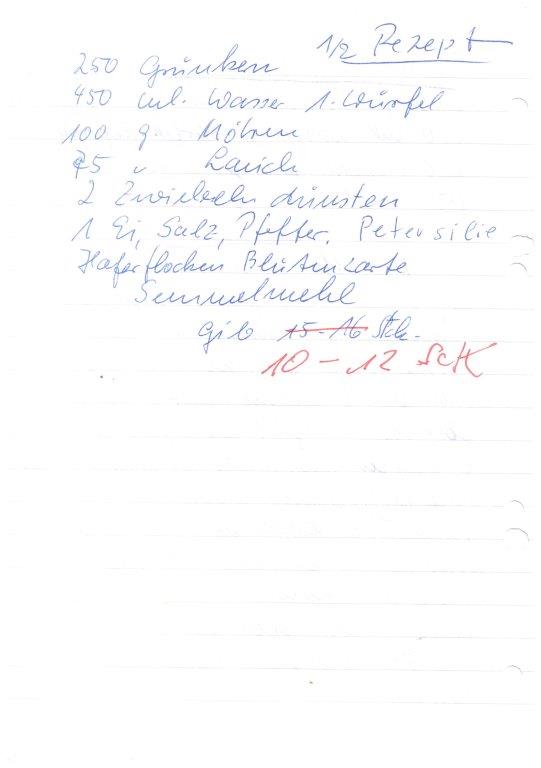 1/2 Rezept
250 Grünkern
450 ml. Wasser 1. Würfel
100 g Möhren
75 " Lauch
2 Zwiebeln dünsten
1 Ei, Salz, Pfeffer, Petersilie
Haferflocken Blütenzarte
Semmelmehl
gib 15-16 Stck.
10-12 Sck